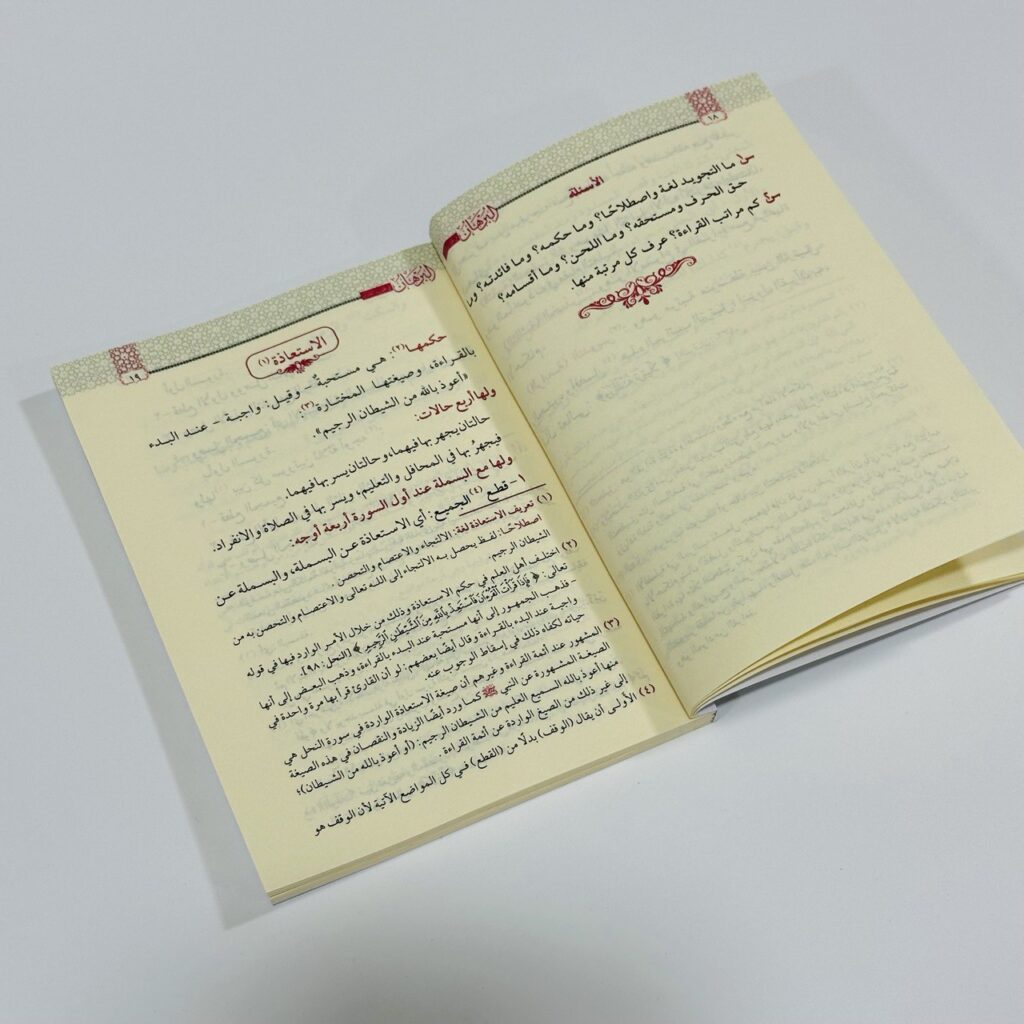 ١٨
البرهان
الأسئلة
س١ ما التجويد لغة واصطلاحًا؟ وما حكمه؟ وما فائدته؟
حق الحرف ومستحقه؟ وما اللحن؟ وما أقسامه؟
س٢ كم مراتب القراءة؟ عرف كل مرتبة منها.
البرهان
١٩
الاستعاذة (١)
حكمها(٢): هي مستحبة - وقيل: واجبة - عند البدء
بالقراءة، وصيغتها المختارة(٣):
«أعوذ بالله من الشيطان الرجيم».
ولها أربع حالات:
حالتان يجهر بها فيهما، وحالتان يسر بها فيهما.
فيجهرُ بها في المحافل والتعليم، ويسر بها في الصلاة والانفراد.
ولها مع البسملة عند أول السورة أربعة أوجه:
١- قطع (٤) الجميع: أي الاستعاذة عن البسملة، والبسملة عن
(١) تعريف الاستعاذة لغة: الالتجاء والاعتصام والتحصن.
اصطلاحًا: لفظ يحصل به الالتجاء إلى الله تعالى والاعتصام والتحصن به من
الشيطان الرجيم.
(٢) اختلف أهل العلم في حكم الاستعاذة وذلك من خلال الأمر الوارد فيها في قوله
تعالى: ﴿فَإِذَا قَرَأْتَ الْقُرْآنَ فَاسْتَعِذْ بِاللَّهِ مِنَ الشَّيْطَانِ الرَّجِيمِ﴾ [النحل: ٩٨].
- فذهب الجمهور إلى أنها مستحبة عند البدء بالقراءة، وذهب البعض إلى أنها
واجبة عند البدء بالقراءة وقال أيضًا بعضهم: لو أن القارئ قرأ بها مرة واحدة في
حياته لكفاه ذلك في إسقاط الوجوب عنه.
(٣) المشهور عند أئمة القراءة وغيرهم أن صيغة الاستعاذة الواردة في سورة النحل هي
الصيغة المشهورة عن النبي ﷺ كما ورد أيضًا الزيادة والنقصان في هذه الصيغة
منها أعوذ بالله السميع العليم من الشيطان الرجيم: (أو أعوذ بالله من الشيطان)؛
إلى غير ذلك من الصيغ الواردة عن أئمة القراءة.
(٤) الأولى أن يقال (الوقف) بدلًا من (القطع) في كل المواضع الآتية لأن الوقف هو